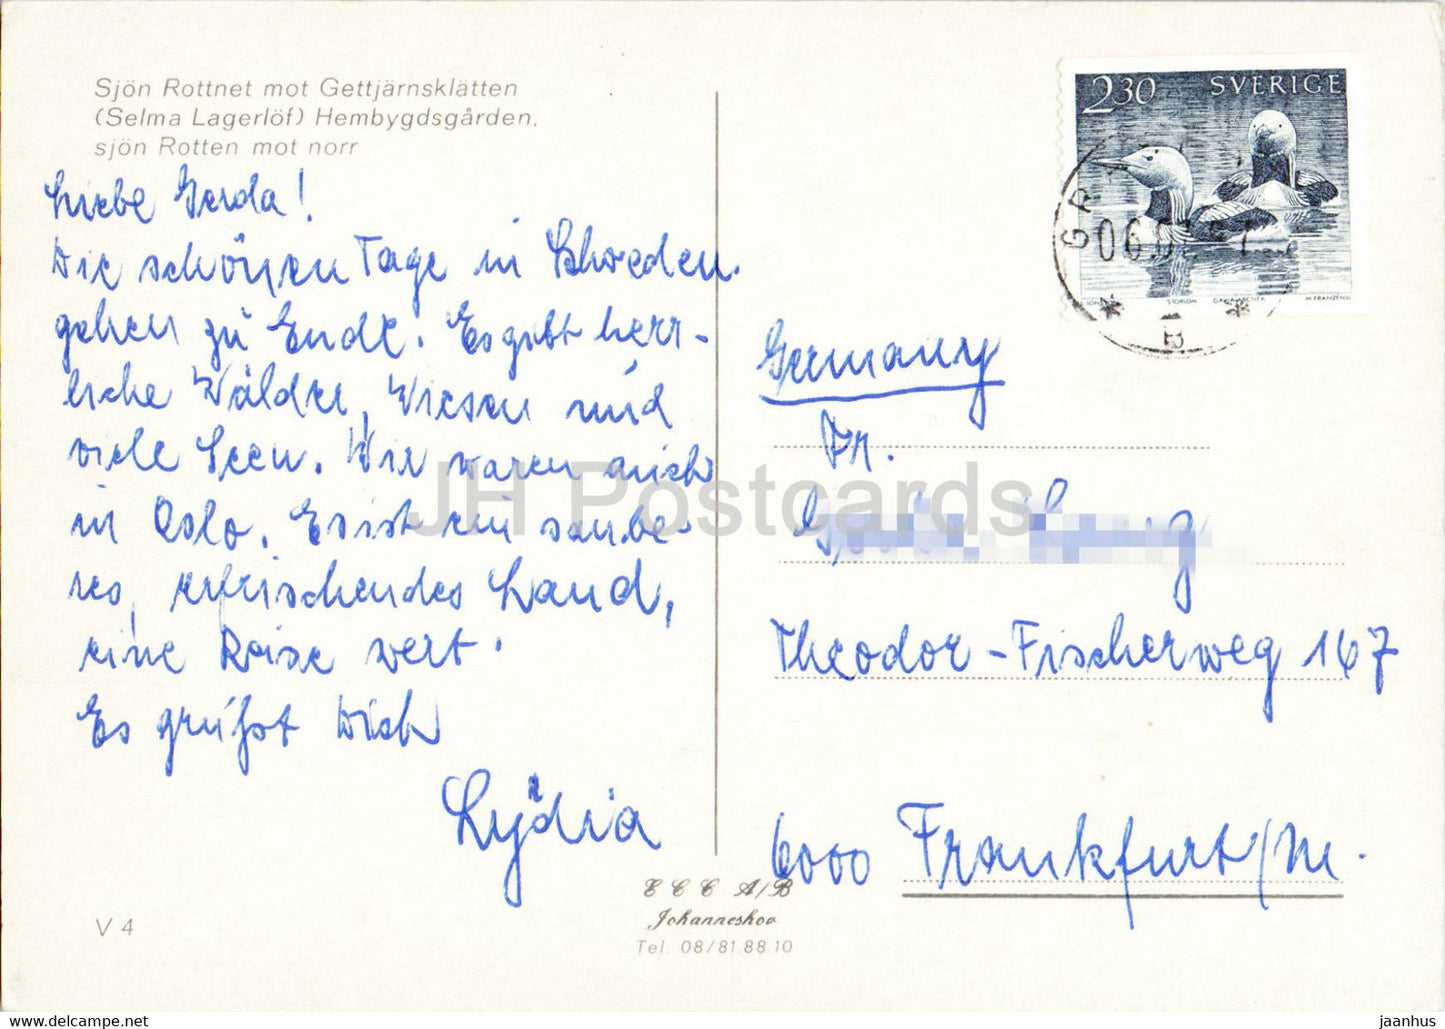 Sjön Rottnet mot Gettjärnsklätten
(Selma Lagerlöf) Hembygdsgården,
sjön Rotten mot norr
Liebe Gerda!
Die schönen Tage in Schweden
gehen zu Ende. Es gibt herr-
liche Wälder, Wiesen und
viele Seen. Wir waren auch
in Oslo. Es ist ein saube-
res, erfrischendes Land,
eine Reise wert.
Es grüßt Dich
Lydia
V 4
2.30 SVERIGE
STORLOM GAVIA ARCTICA M FRANZÉN SC
06.02
B
Germany
Fr.
Theodor-Fischerweg 167
6000 Frankfurt/M.
E C C A/B
Johanneshov
Tel. 08/81.88.10
JH Postcards
https://jhpostcards.com
jaanhus